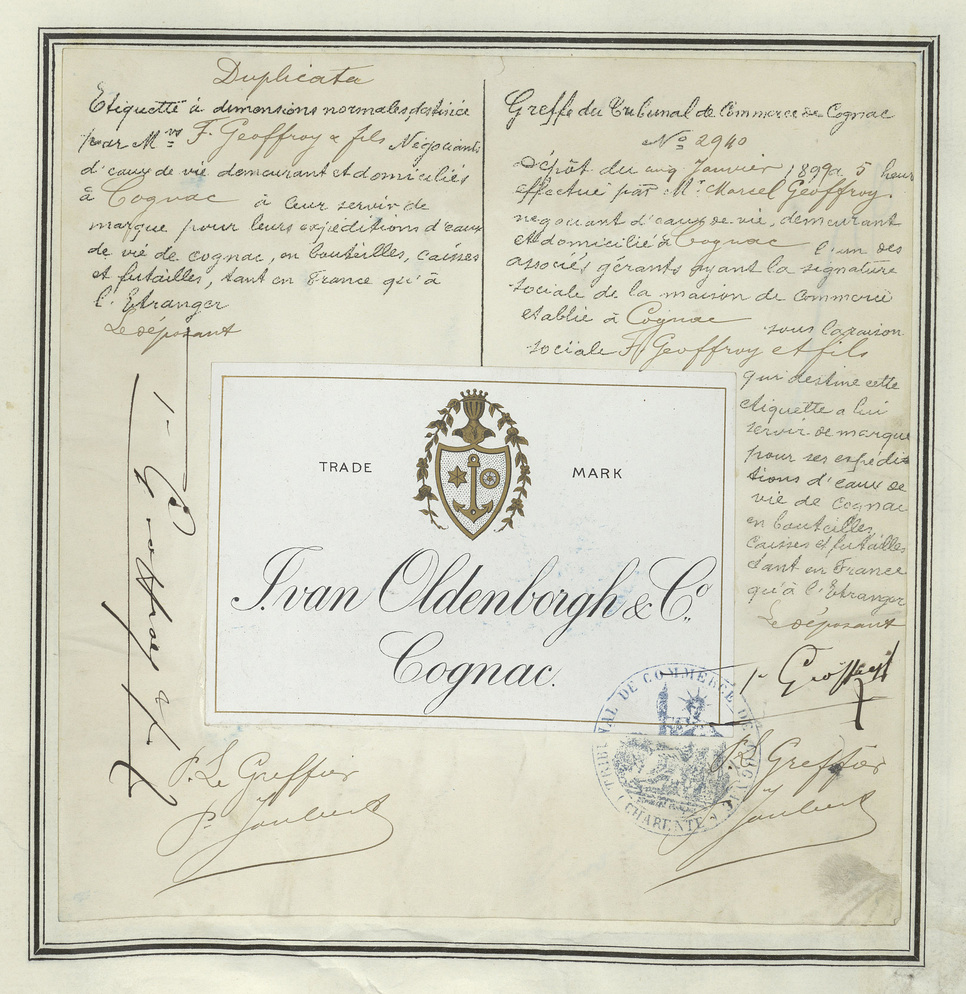 Duplicata
Etiquette à dimensions normales destinée
par M.rs F. Geoffroy & fils Négociants
d'eaux de vie demeurant et domiciliés
à Cognac à leur servir de
marque pour leurs expéditions d'eaux
de vie de cognac, en bouteilles, caisses
et futailles, tant en France qu'à
l'Etranger
Le déposant
F. Geoffroy & fils
P. Le Greffier
P. Joubert
Greffe du Tribunal de Commerce de Cognac
No 2940
Dépôt du cinq Janvier 1899 à 5 heur
effectué par Mr Marcel Geoffroy
negociant d'eaux de vie, demeurant
et domicilié à Cognac l'un des
associés gérants ayant la signature
sociale de la maison de Commerce
etablie à Cognac sous la raison
sociale F. Geoffroy et fils
qui destine cette
etiquette a lui
servir de marque
pour ses expédi
tions d'eaux de
vie de cognac
en bouteilles,
caisses et futailles
tant en France
qu'à l'Etranger
Le déposant
Geoffroy
P. Le Greffier
Joubert
TRADE MARK
J. van Oldenborgh & Co.,
Cognac.
TRIBUNAL DE COMMERCE DE COGNAC
CHARENTE